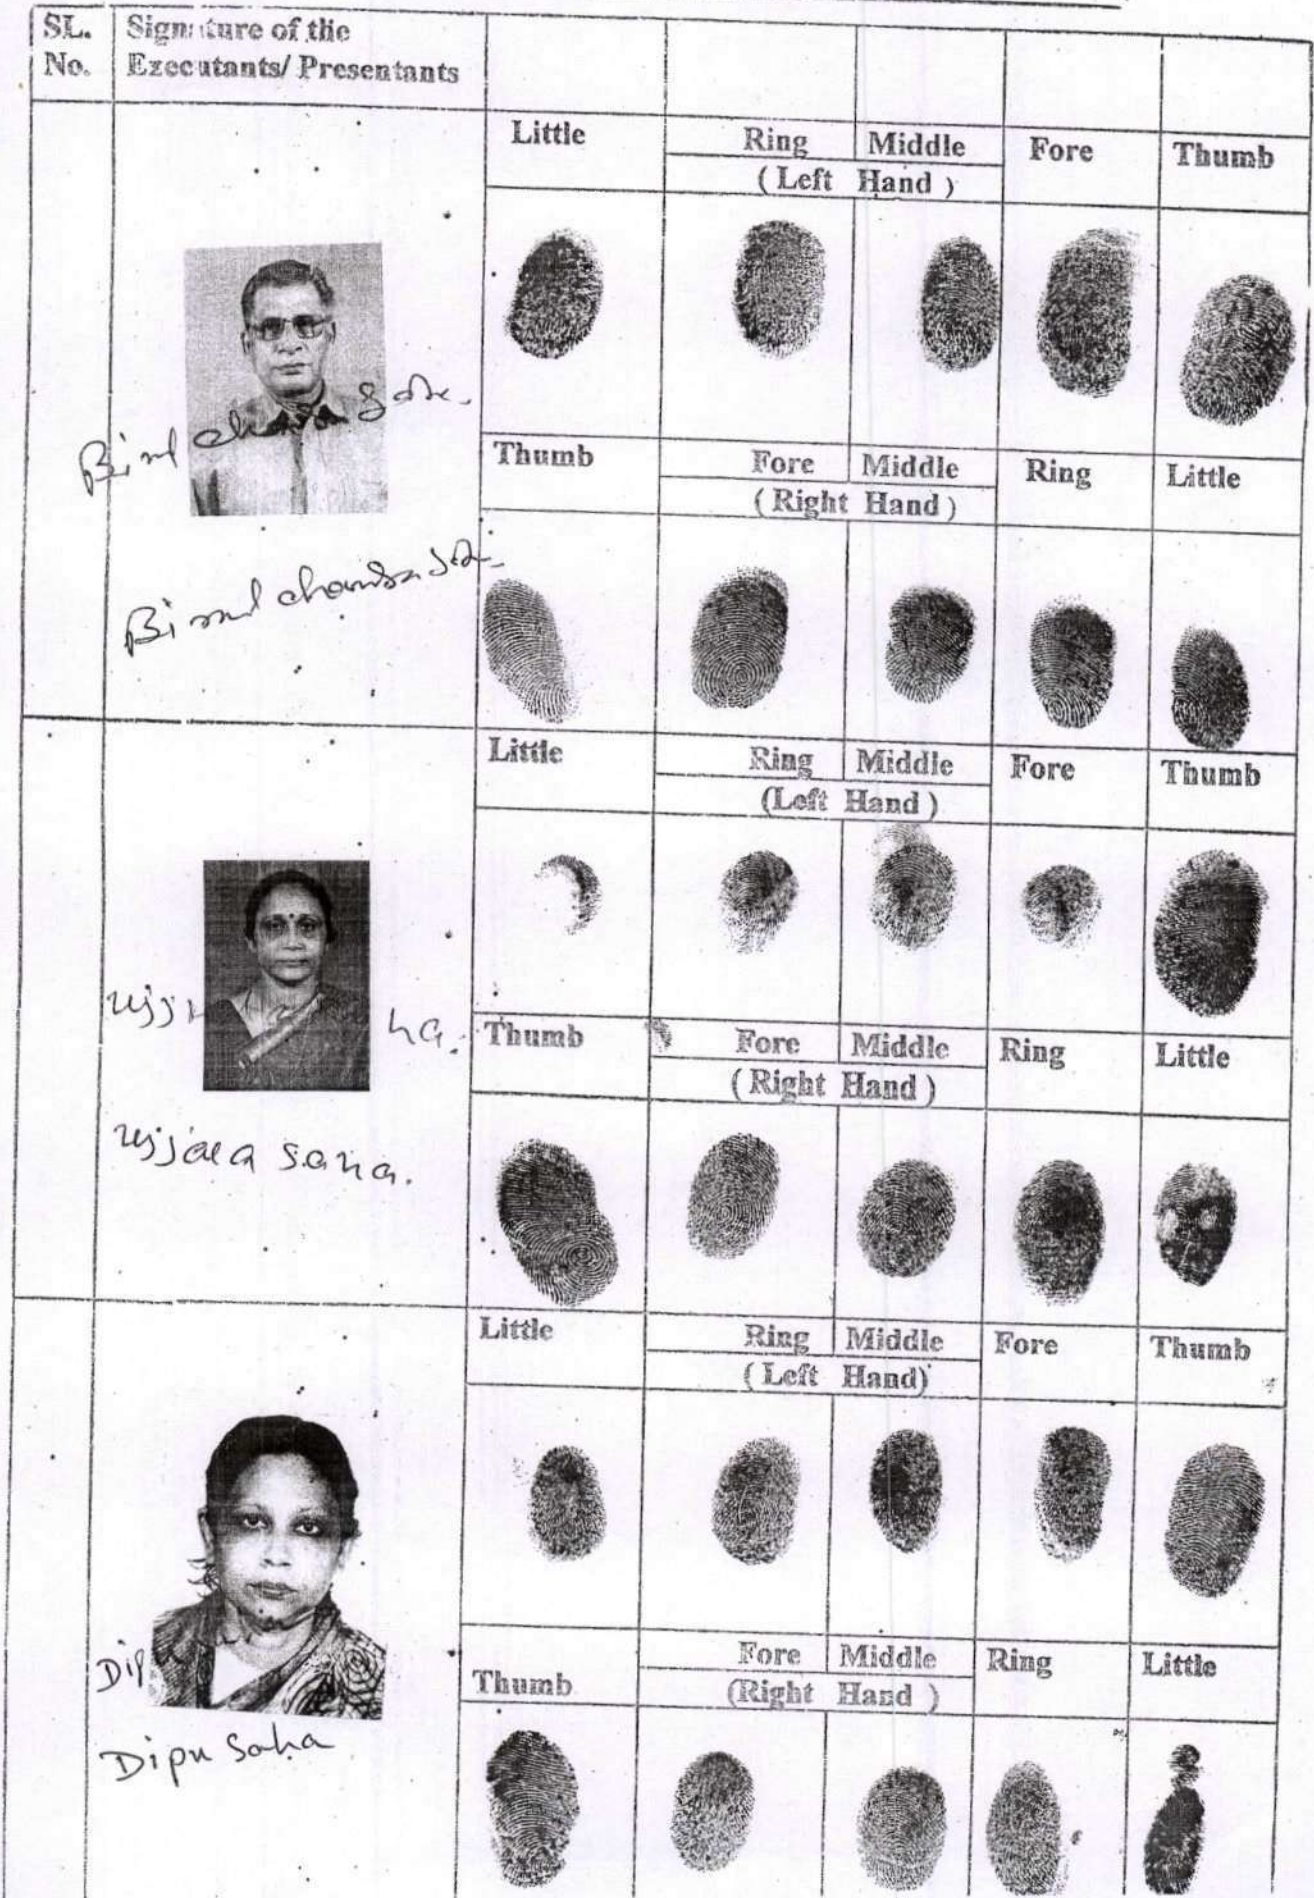 SL. Signature of the
No. Executants/ Presentants
Little Ring Middle Fore Thumb
( Left Hand )
Thumb Fore Middle Ring Little
( Right Hand )
Little Ring Middle Fore Thumb
(Left Hand )
Thumb Fore Middle Ring Little
( Right Hand )
ujjala saha.
Little Ring Middle Fore Thumb
( Left Hand)
Thumb Fore Middle Ring Little
(Right Hand )
Dipu Saha